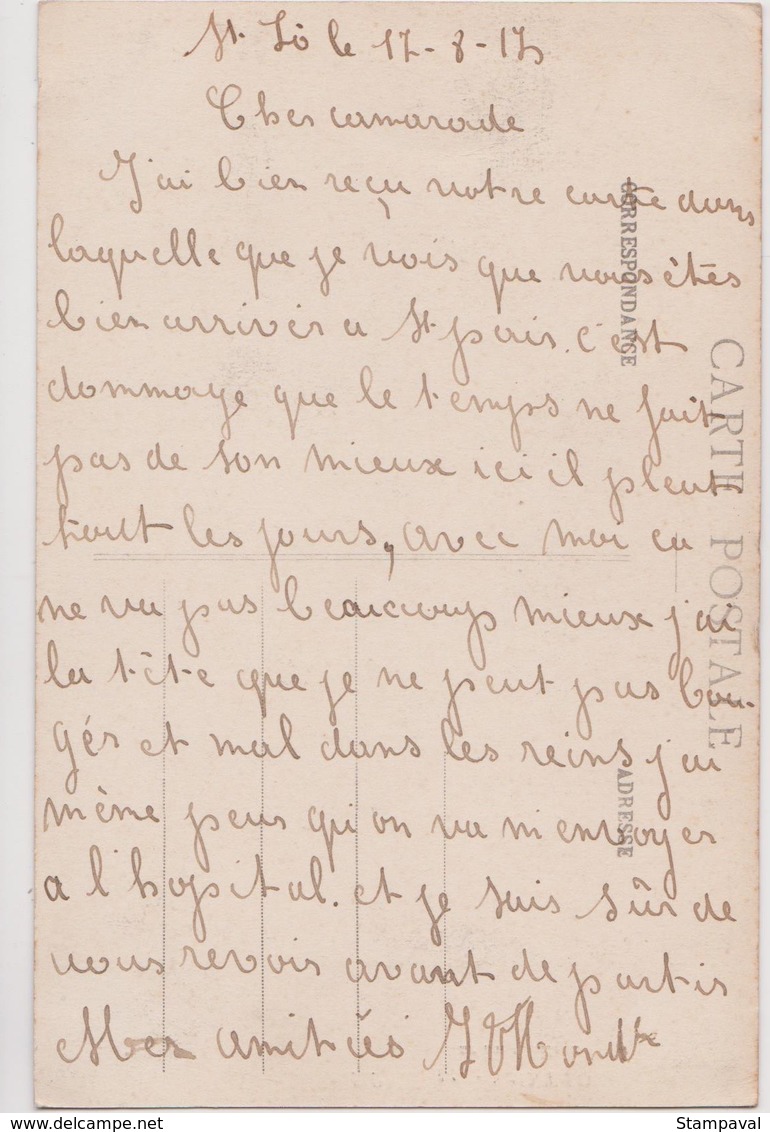 St. Lô le 17-8-17
Cher camarade
J'ai bien reçu votre carte dans
laquelle que je vois que vous êtes
bien arriver a St. pois. c'est
dommage que le temps ne fait
pas de son mieux ici il pleut
tout les jours, avec moi ca
ne va pas beaucoup mieux j'ai
la tête que je ne peut pas bou-
gér et mal dans les reins j'ai
même peur qu'on va m'envoyer
a l'hopital. et je suis sûr de
vous revoir avant de partir
Mes amitiés
CORRESPONDANCE
CARTE POSTALE
ADRESSE
Stampaval